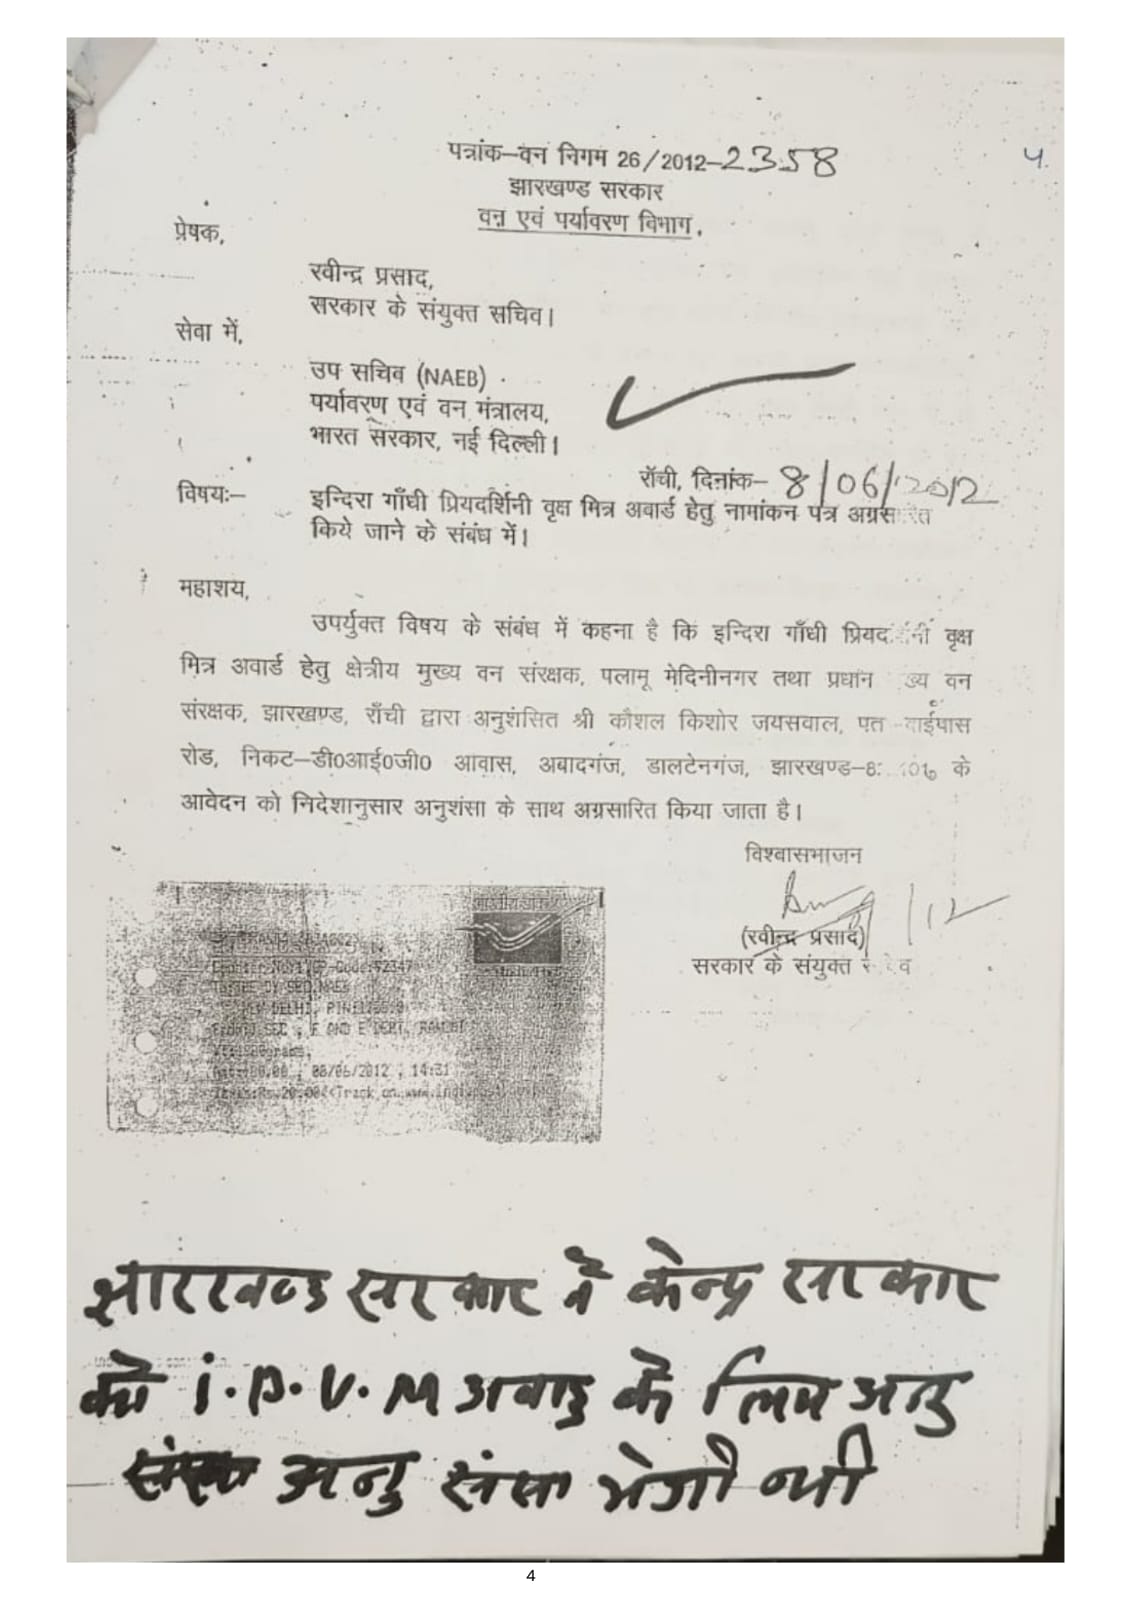 पत्रांक–वन निगम 26/2012–2358
4
झारखण्ड सरकार
वन एवं पर्यावरण विभाग.
प्रेषक,
रवीन्द्र प्रसाद,
सरकार के संयुक्त सचिव।
सेवा में,
उप सचिव (NAEB)
पर्यावरण एवं वन मंत्रालय,
भारत सरकार, नई दिल्ली।
रॉची, दिनांक– 8/06/2012
विषयः– इन्दिरा गॉंधी प्रियदर्शिनी वृक्ष मित्र अवार्ड हेतु नामांकन पत्र
किये जाने के संबंध में।
महाशय,
उपर्युक्त विषय के संबंध में कहना है कि इन्दिरा गॉंधी वृक्ष
मित्र अवार्ड हेतु क्षेत्रीय मुख्य वन संरक्षक, पलामू मेदिनीनगर तथा प्रधान वन
संरक्षक, झारखण्ड, रॉंची द्वारा अनुशंसित श्री कौशल किशोर जयसवाल,
रोड, निकट–डी0आई0जी0 आवास, अबादगंज, डालटेनगंज, के
आवेदन को निदेशानुसार अनुशंसा के साथ अग्रसारित किया जाता है।
विश्वासभाजन
(रवीन्द्र प्रसाद)
सरकार के संयुक्त
NEW DELHI,
08/06/2012 , 14:31
झारखण्ड सरकार ने केन्द्र सरकार
को i.P.V.M अवार्ड के लिए अनु
अनु संसा भेजी थी
4